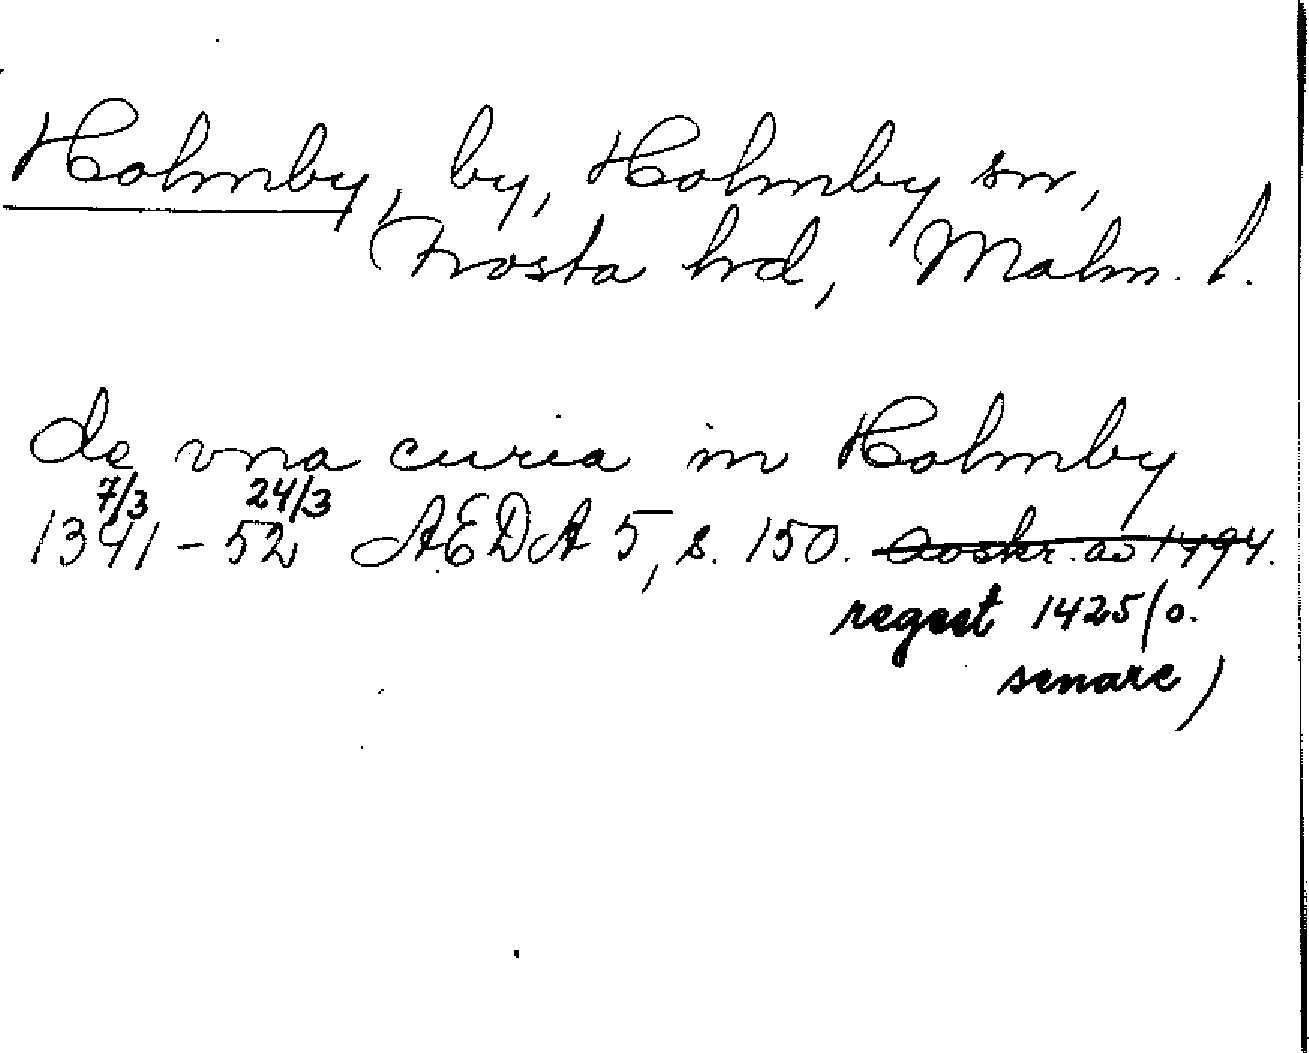 Holmby, by, Holmby sn,
Frosta hd, Malm. l.
de vna curia in Holmby
7/3 24/3
1341-52 AEDA 5, s. 150. Avskr. av 1494.
regest 1425 (o.
senare)